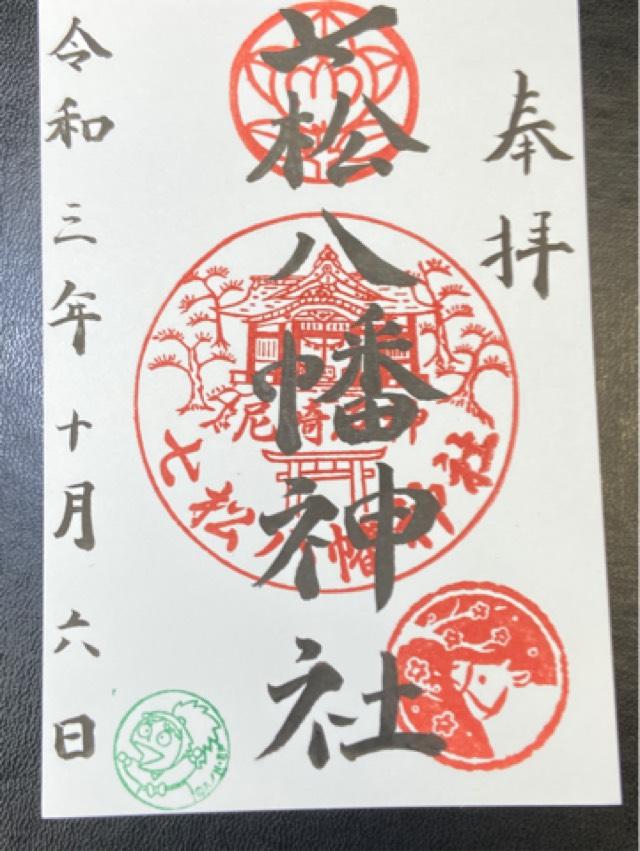 奉拝
七松八幡神社
令和三年十月六日
尼崎
七松八幡神社